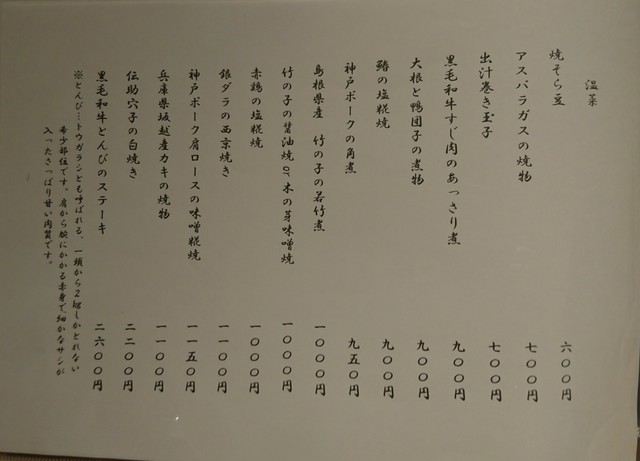 温菜
焼そら豆 六〇〇円
アスパラガスの焼物 七〇〇円
出汁巻き玉子 七〇〇円
黒毛和牛すじ肉のあっさり煮 九〇〇円
大根と鴨団子の煮物 九〇〇円
鰆の塩糀焼 九〇〇円
神戸ポークの角煮 九五〇円
島根県産 竹の子の若竹煮 一〇〇〇円
竹の子の醤油焼 or 木の芽味噌焼 一〇〇〇円
赤鶏の塩糀焼 一〇〇〇円
銀ダラの西京焼き 一一〇〇円
神戸ポーク肩ロースの味噌糀焼 一一五〇円
兵庫県坂越産カキの焼物 一一〇〇円
伝助穴子の白焼き 二二〇〇円
黒毛和牛とんびのステーキ 二六〇〇円
※とんび…トウガラシとも呼ばれる、一頭から2kgしかとれない
希少部位です。肩から腕にかかる赤身で、細かなサシが
入ったさっぱり甘い肉質です。